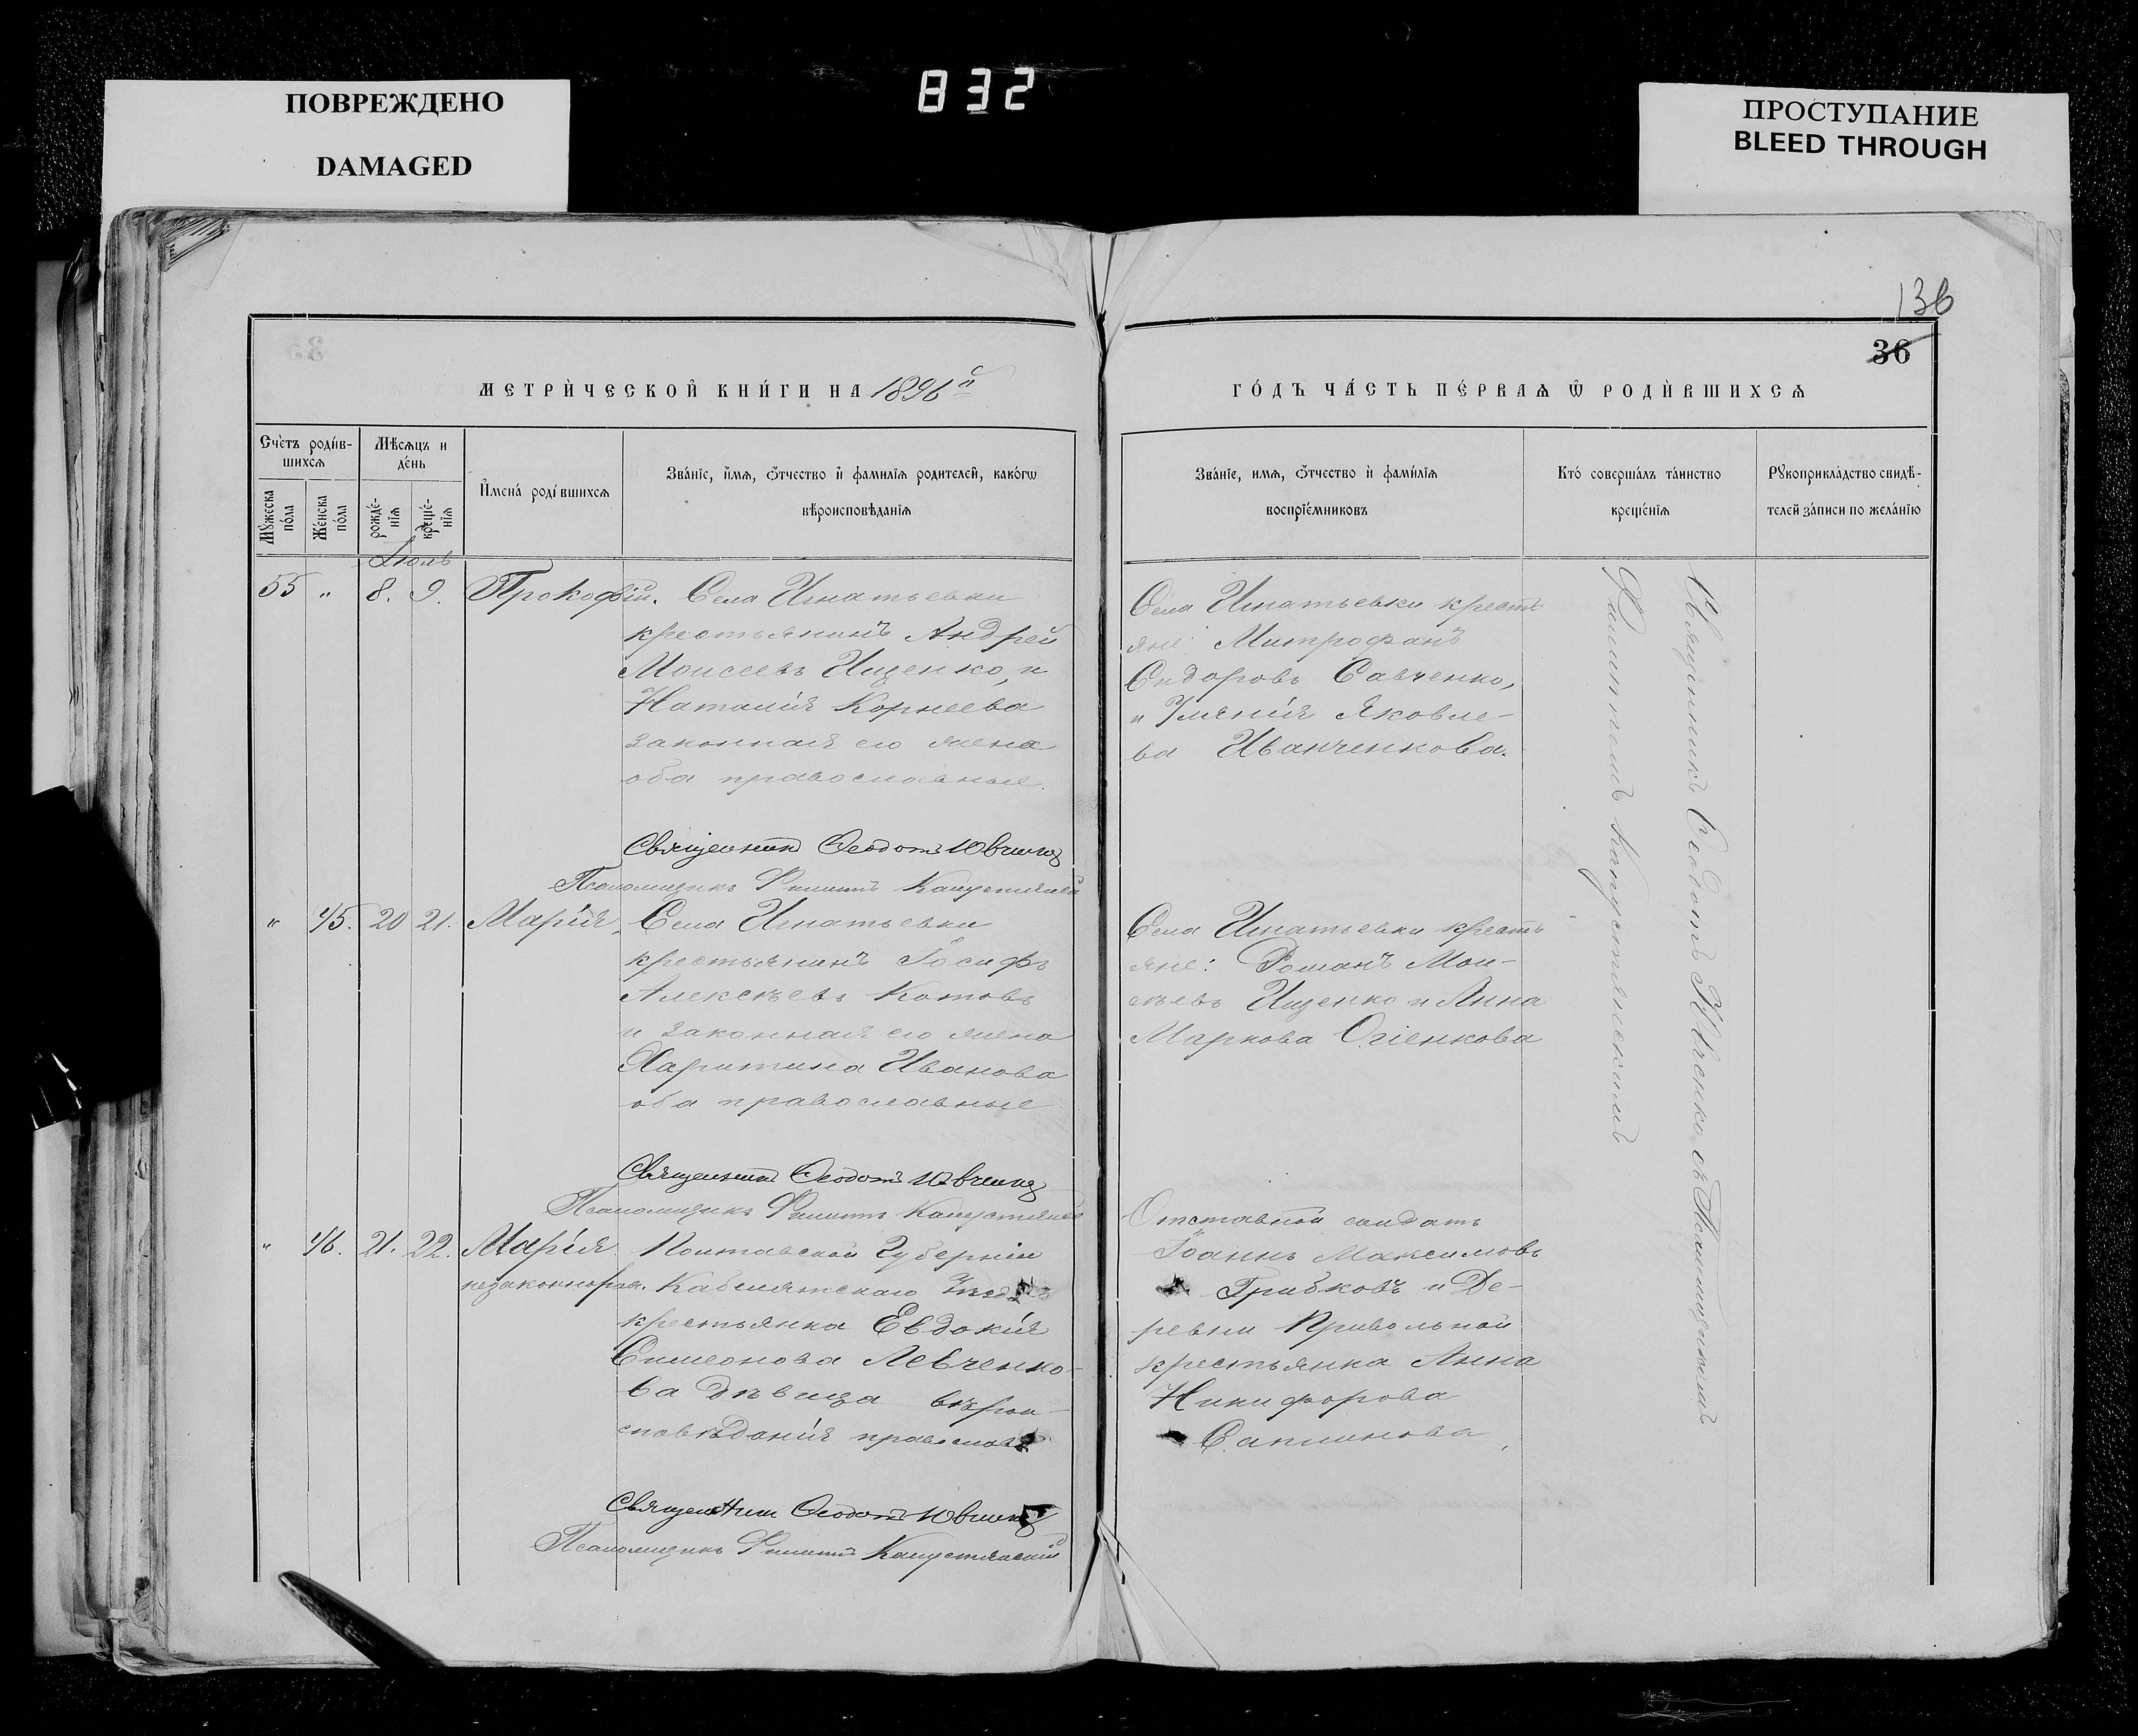 ПОВРЕЖДЕНО
DAMAGED
832
ПРОСТУПАНИЕ
BLEED THROUGH
136
36
МЕТРИ́ЧЕСКОЙ КНИ́ГИ НА 1896й
ГО́ДЪ ЧА́СТЬ ПЕ́РВАѦ Ѿ РОДИ́ВШИХСѦ
Сче́тъ роди́в-
шихсѧ
Мѣ́сѧцъ и
де́нь
Мꙋжеска по́ла
Же́нска по́ла
рожде́-
нїѧ
креще́-
нїѧ
И҆мена́ роди́вшихсѧ
Зва́нїе, и҆́мѧ, ѻ҆́тчество и҆ фами́лїѧ роди́телей, како́гѡ
вѣроисповѣ́данїѧ
Зва́нїе, имѧ, ѻ҆́тчество и҆ фами́лїѧ
воспрїе́мниковъ
Кто́ соверша́лъ та́инство
креще́нїѧ
Рꙋкоприкла́дство свидѣ́-
телей за́писи по жела́нїю
Іюль
55 " 8. 9. Прокофій. Села Игнатьевки
крестьянинъ Андрей
Моисеевъ Ищенко, и
Наталія Корнеева
законная его жена
оба православные.
Священникъ Ѳеодотъ Ювченко
Псаломщикъ Филиппъ Капустянскій
Села Игнатьевки кресть
яне: Митрофанъ
Сидоровъ Савченко,
и Уліянія Яковле-
ва Иванченкова.
" 45. 20 21. Марія. Села Игнатьевки
крестьянинъ Іосифъ
Алексѣевъ Котовъ
и законная его жена
Харитина Иванова
оба православные
Священникъ Ѳеодотъ Ювченко
Псаломщикъ Филиппъ Капустянскій
Села Игнатьевки кресть
яне: Романъ Мои-
сѣевъ Ищенко и Анна
Маркова Огіенкова
" 46. 21. 22. Марія Полтавской Губерніи
незаконнорож. Кабелятскаго Уѣзда
крестьянка Евдокія
Симеонова Левченко-
ва дѣвица вѣрои-
сповѣданія православ.
Священникъ Ѳеодотъ Ювченко
Псаломщикъ Филиппъ Капустянскій
Отставной солдатъ
Іоаннъ Максимовъ
Грибковъ и Де-
ревни Привольной
крестьянка Анна
Никифорова
Саплинова
Священникъ Ѳеодотъ Ювченко съ Псаломщикомъ
Филиппомъ Капустянскимъ